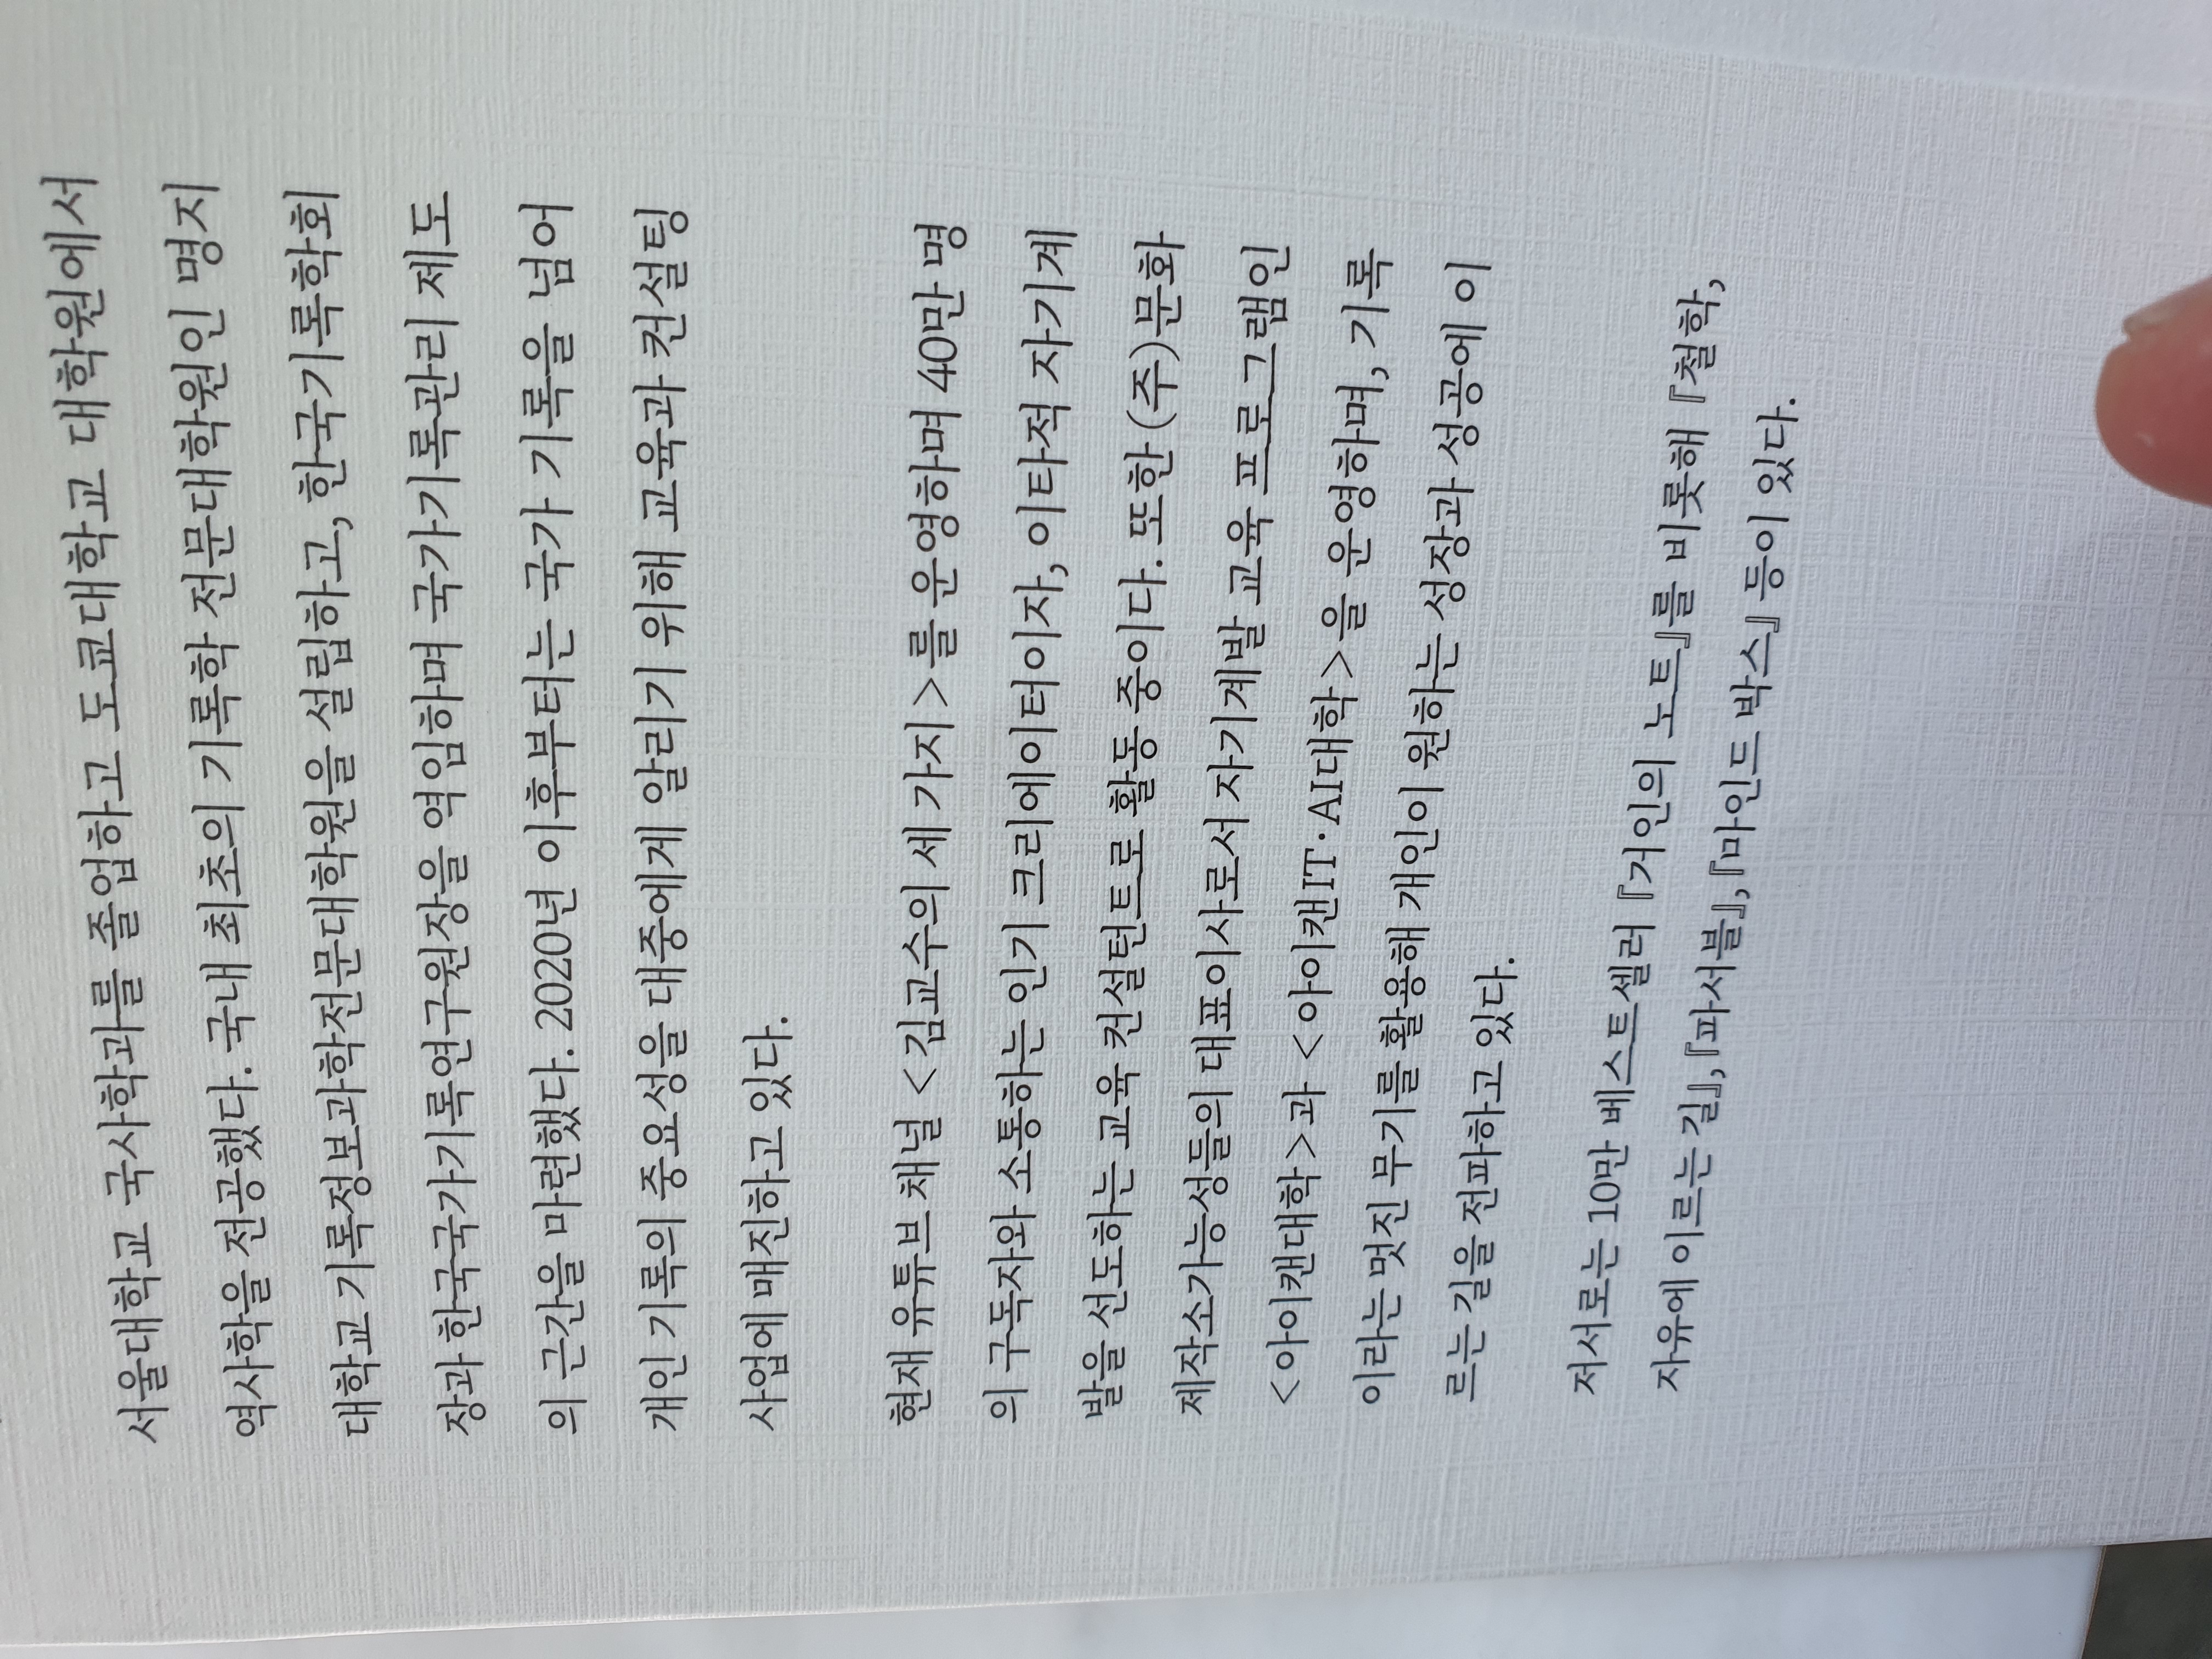 서울대학교 국사학과를 졸업하고 도쿄대학교 대학원에서
역사학을 전공했다. 국내 최초의 기록학 전문대학원인 명지
대학교 기록정보과학전문대학원을 설립하고, 한국기록학회
장과 한국국가기록연구원장을 역임하며 국가기록관리 제도
의 근간을 마련했다. 2020년 이후부터는 국가 기록을 넘어
개인 기록의 중요성을 대중에게 알리기 위해 교육과 컨설팅
사업에 매진하고 있다.
현재 유튜브 채널 <김교수의 세 가지>를 운영하며 40만 명
의 구독자와 소통하는 인기 크리에이터이자, 이타적 자기계
발을 선도하는 교육 컨설턴트로 활동 중이다. 또한 (주)문화
제작소가능성들의 대표이사로서 자기계발 교육 프로그램인
<아이캔대학>과 <아이캔IT·AI대학>을 운영하며, 기록
이라는 멋진 무기를 활용해 개인이 원하는 성장과 성공에 이
르는 길을 전파하고 있다.
저서로는 10만 베스트셀러 『거인의 노트』를 비롯해 『철학,
자유에 이르는 길』, 『파서블』, 『마인드 박스』 등이 있다.